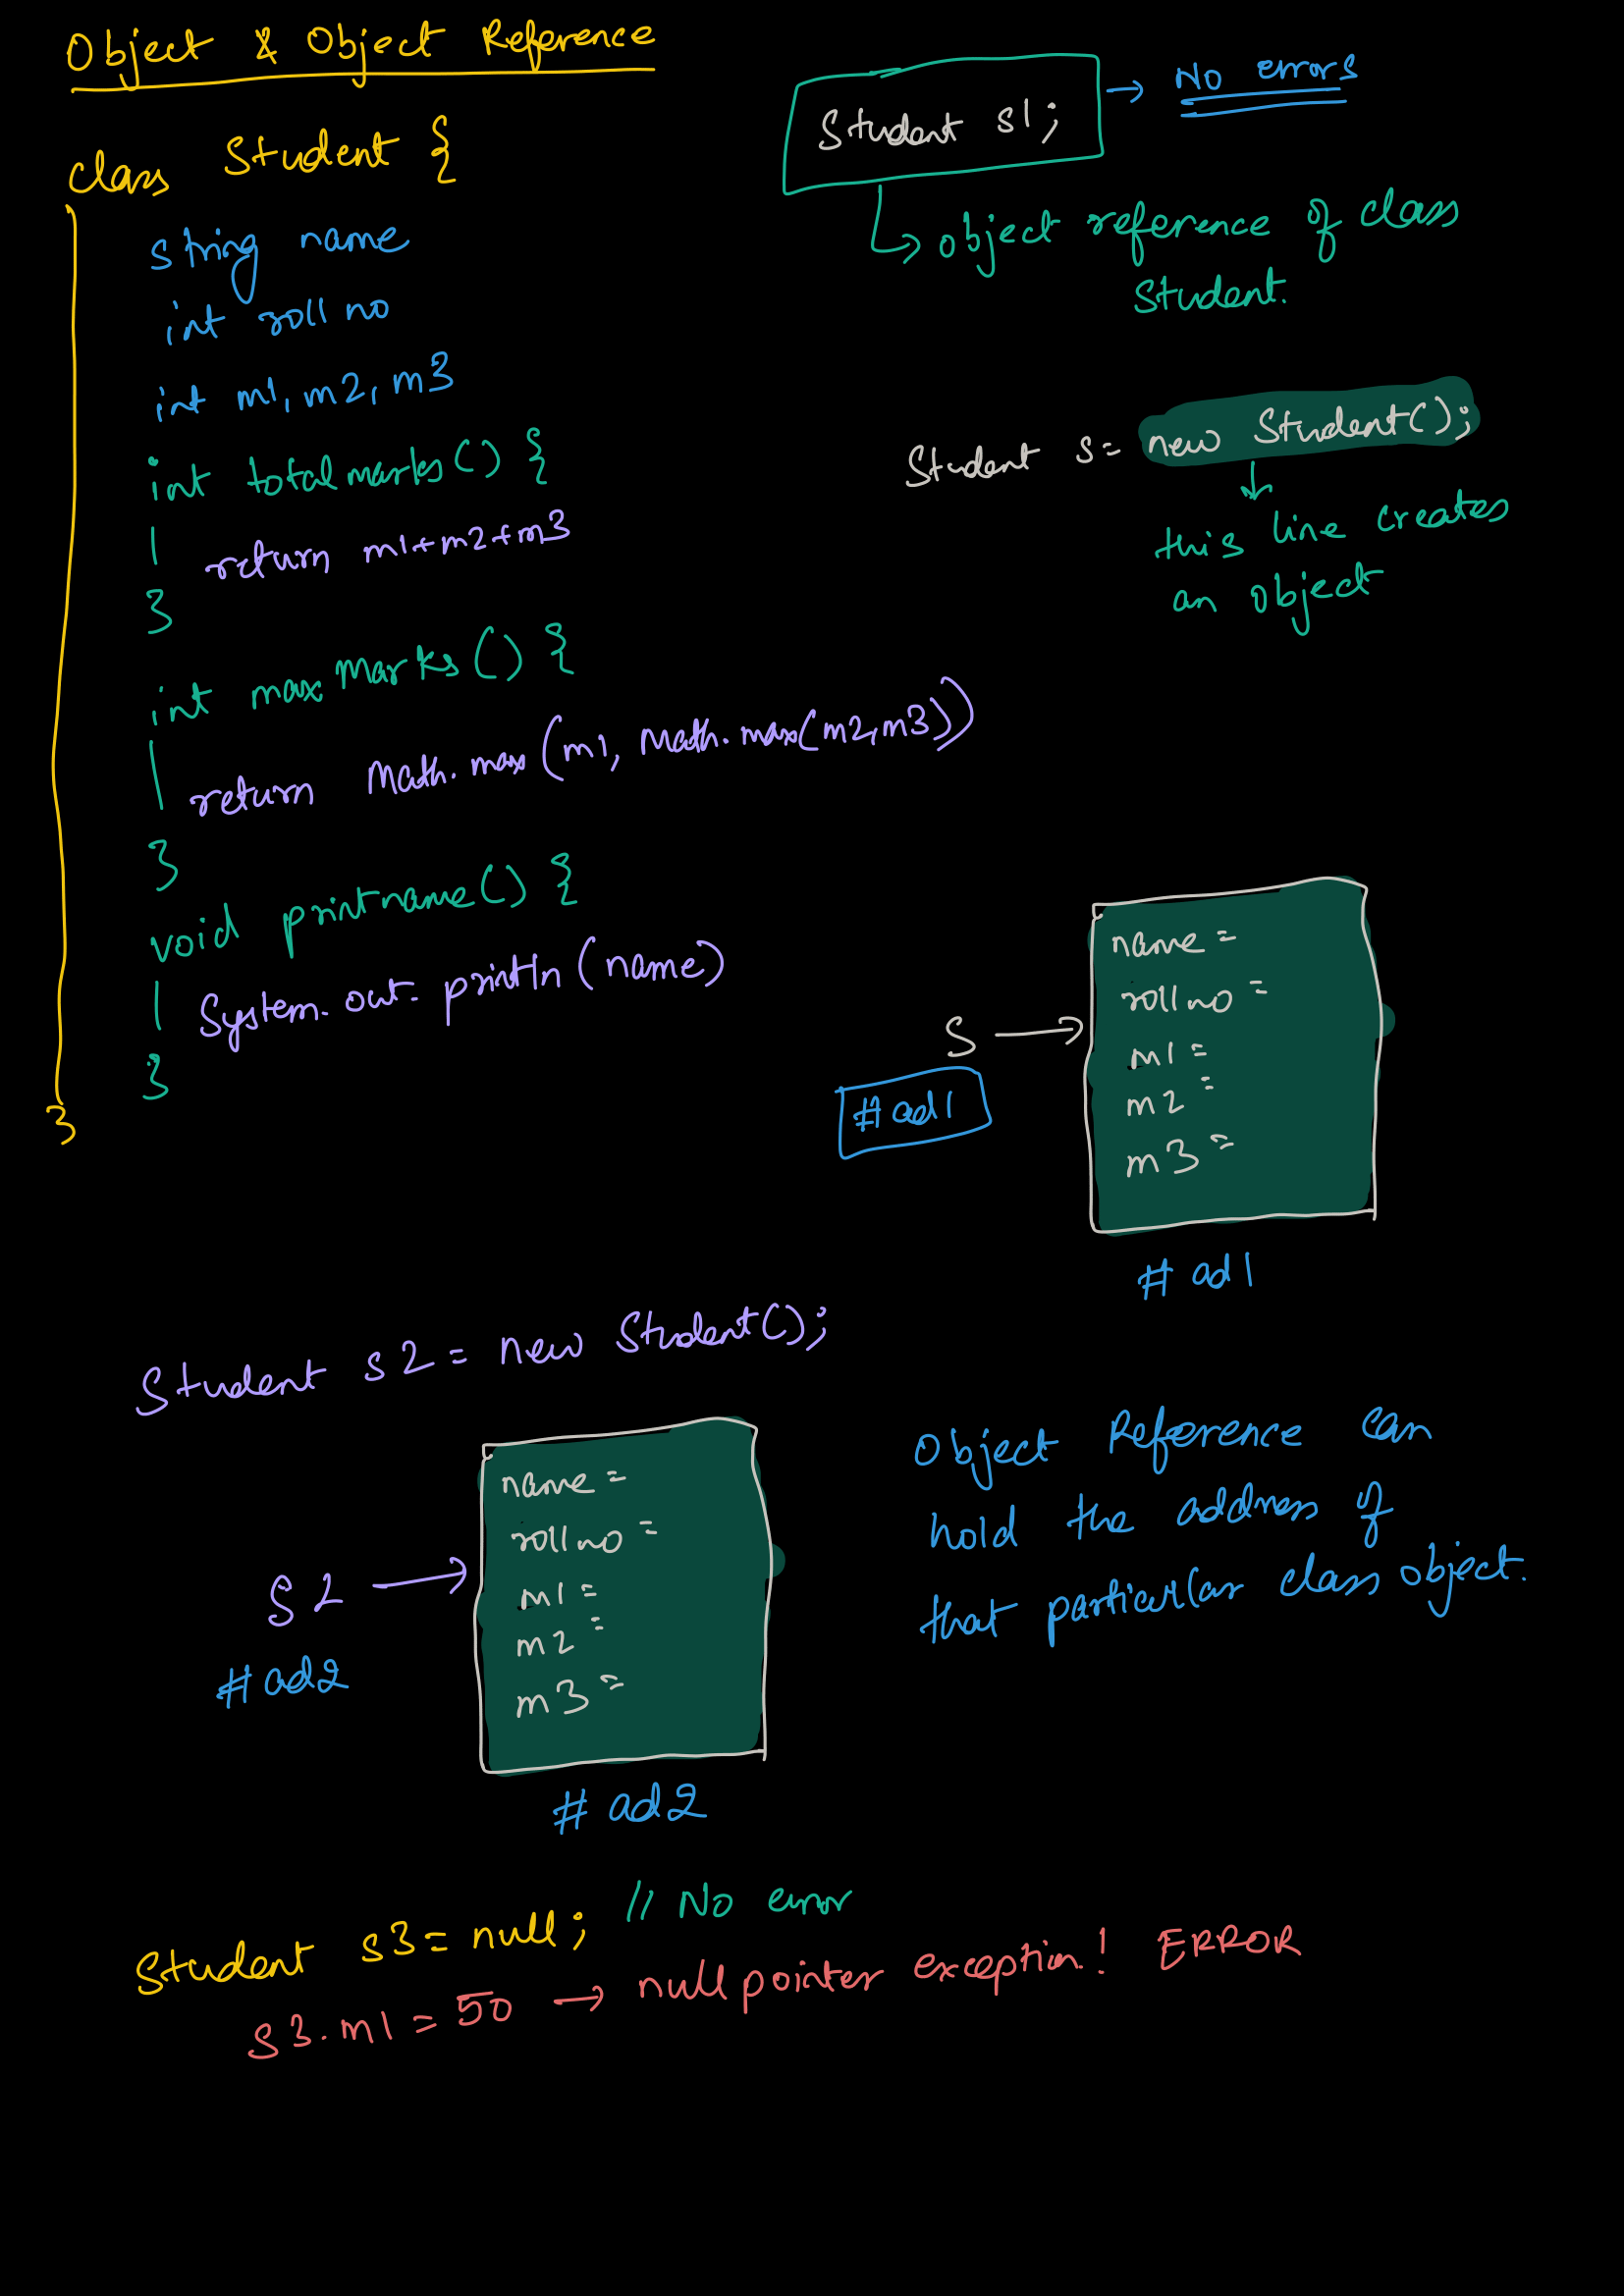 Object & Object Reference
class Student {
string name
int roll no
int m1, m2, m3
int total marks() {
return m1+m2+m3
}
int max marks() {
return Math.max(m1, Math.max(m2,m3))
}
void printname() {
System.out.println(name)
}
}
Student s1; → No errors
object reference of class
Student.
Student s = new Student();
this line creates
an object
name =
roll no =
m1 =
m2 =
m3 =
S →
#ad1
# ad1
Student s2 = new Student();
name =
roll no =
m1 =
m2 =
m3 =
S2 →
#ad2
# ad2
Object Reference can
hold the address of
that particular class object.
Student s3 = null; // No error
s3.m1 = 50 → null pointer exception! ERROR